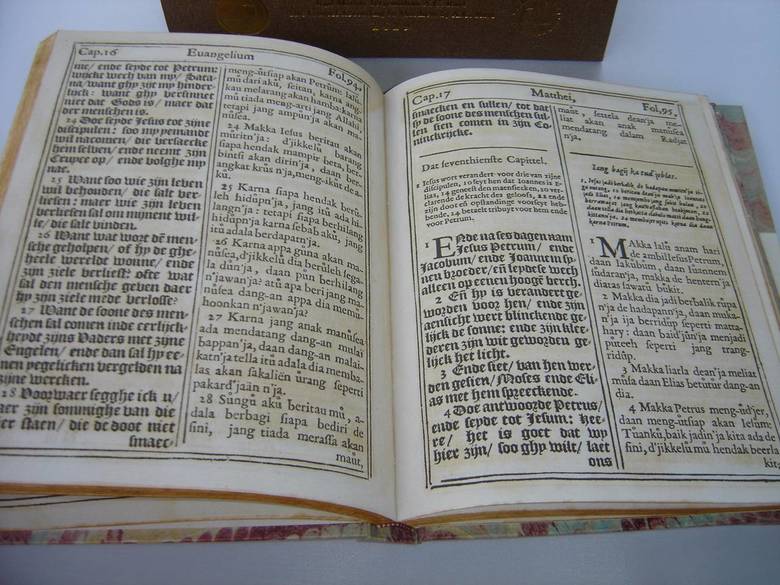 Cap.16 Euangelium Fol.94.
me/ ende seyde tot Petrum:
wijckt wech van my/ Sata-
na/ want ghy zijt my hinder-
lijck: want ghy versinnet
niet dat Gods is/ maer dat
der menschen is.
24 Doe seyde Jesus tot zijne
discipulen: soo my yemandt
wil nacomen/ die versaecke
hem selven/ ende neeme zijn
Cruyce op/ ende volghe my
nae.
25 Want soo wie zijn leven
wil behouden/ die salt ver-
liesen: maer wie zijn leven
verliesen sal om mijnent wil-
le/ die salt vinden.
26 Want wat wort dē mensche
geholpen/ of hy de ghe-
heele werelt wonne/ ende
zijn ziele verliest? ofte wat
sal den mensche geven daer
hy zijn ziele mede verlosse?
27 Want de soone des men-
schen sal comen inde eerlijck-
heydt zijns Vaders met zijne
Engelen/ ende dan sal hy ee-
nen yegelicken vergelden na
zijne wercken.
28 Voorwaer segghe ick u/
daer zijn sommighe van die
hier staen/ die de doot niet
smaec-
meng-ûtsiap akan Petrum: laļû
mu dari akû, seitan, karna ang-
kau melarang akan hamba: karna
mu tiada meng-arti jang Allahi,
tetapi jang ampun'ja akan ma-
nûsea.
24 Makka Iesus beritau akan
murid n'ja: d'jikkelû barang
siapa hendak mampir beta, ber-
bintsi akan dirin'ja, daan ber-
angkat krus n'ja, meng-ikut de a-
kû.
25 Karna siapa hendak berû-
leh hidûpn'ja, jang itû ada hi-
langn'ja: tetapi siapa berhilang
hidupn'ja karna sebab akû, jang
itû ada berdaparn'ja.
26 Karna appa gûna akan ma-
nûsea, d'jikkelû dia berûleh sega-
la dûn'ja, daan pûn berhilang
n'jawan'ja? atû apa beri jang ma-
nûsea dang-an appa dia memû-
hoonkan n'jawan'ja?
27 Karna jang anak manûsea
ada mendatang dang-an mulai
bappan'ja, daan dang-an malai-
katn'ja tella itû adala dia memba-
las akan sakaliën ûrang seperti
pakard'jaän n'ja.
28 Sûngû akû beritau mû, a-
dala berbagi siapa bediri de
sini, jang tiada merassa akan
maût,
Cap.17 Matthei, Fol.95.
smaecken en sullen/ tot dat
sy de soone des menschen sul-
len sien comen in zijn Co-
ninckrijcke.
Dat seventhienste Capittel.
1 Iesus wort verandert voor drie van zijne
discipulen, 10 seyt hen dat Ioannes is E-
lias, 14 geneest den maensiecken, 20 ver-
clarende de kracht des geloofs, 22 ende
zijn doot eñ opstandinge voorseyt heb-
bende, 24 betaelt tribuyt voor hem ende
voor Petrum.
1 ENde na ses dagen nam
Jesus Petrum/ ende
Jacobum/ ende Joannem sy-
nen broeder/ eñ leydese wech
alleen op eenen hoogē berch.
2 En hy is verandert ge-
worden voor hen/ ende zijn
aensicht wert blinckende ge-
lijck de sonne: ende zijn klee-
deren zijn wit geworden ge-
lijck het licht.
3 Ende siet/ van hen wer-
den gesien/ Moses ende Eli-
as met hem spreeckende.
4 Doe antwoorde Petrus/
ende seyde tot Jesum: Hee-
re/ het is goet dat wy
hier zijn/ soo ghy wilt/ laet
ons
maût, sebela dean'ja me-
liat akan anak manûsea
mendatang dalam Radjat
n'ja.
Iang bagij ka tud'jublas.
1 MAkka lalû anam hari
de ambil Iesus Petrum,
daan Iakûbum, daan Iûannem
sûdaran'ja, makka de hentern'ja
diatas sawatû bûkit.
2 Makka dia jadi berbalik rûpa
n'ja de hadapann'ja, daan muka-
n'ja ija berridûp seperti matta-
hary: daan baid'jûn'ja menjadi
pûteeh seperti jang trang-
ridûp.
3 Makka liarla dean'ja meliat
mûsa daan Elias betûtor dang-an
dia.
4 Makka Petrus meng-ûdjer,
daan meng-ûtsiap akan Iesum:
Tûankû, baik jadin'ja kita ada de
sini, d'jikkelû mû hendak beerla
kit,